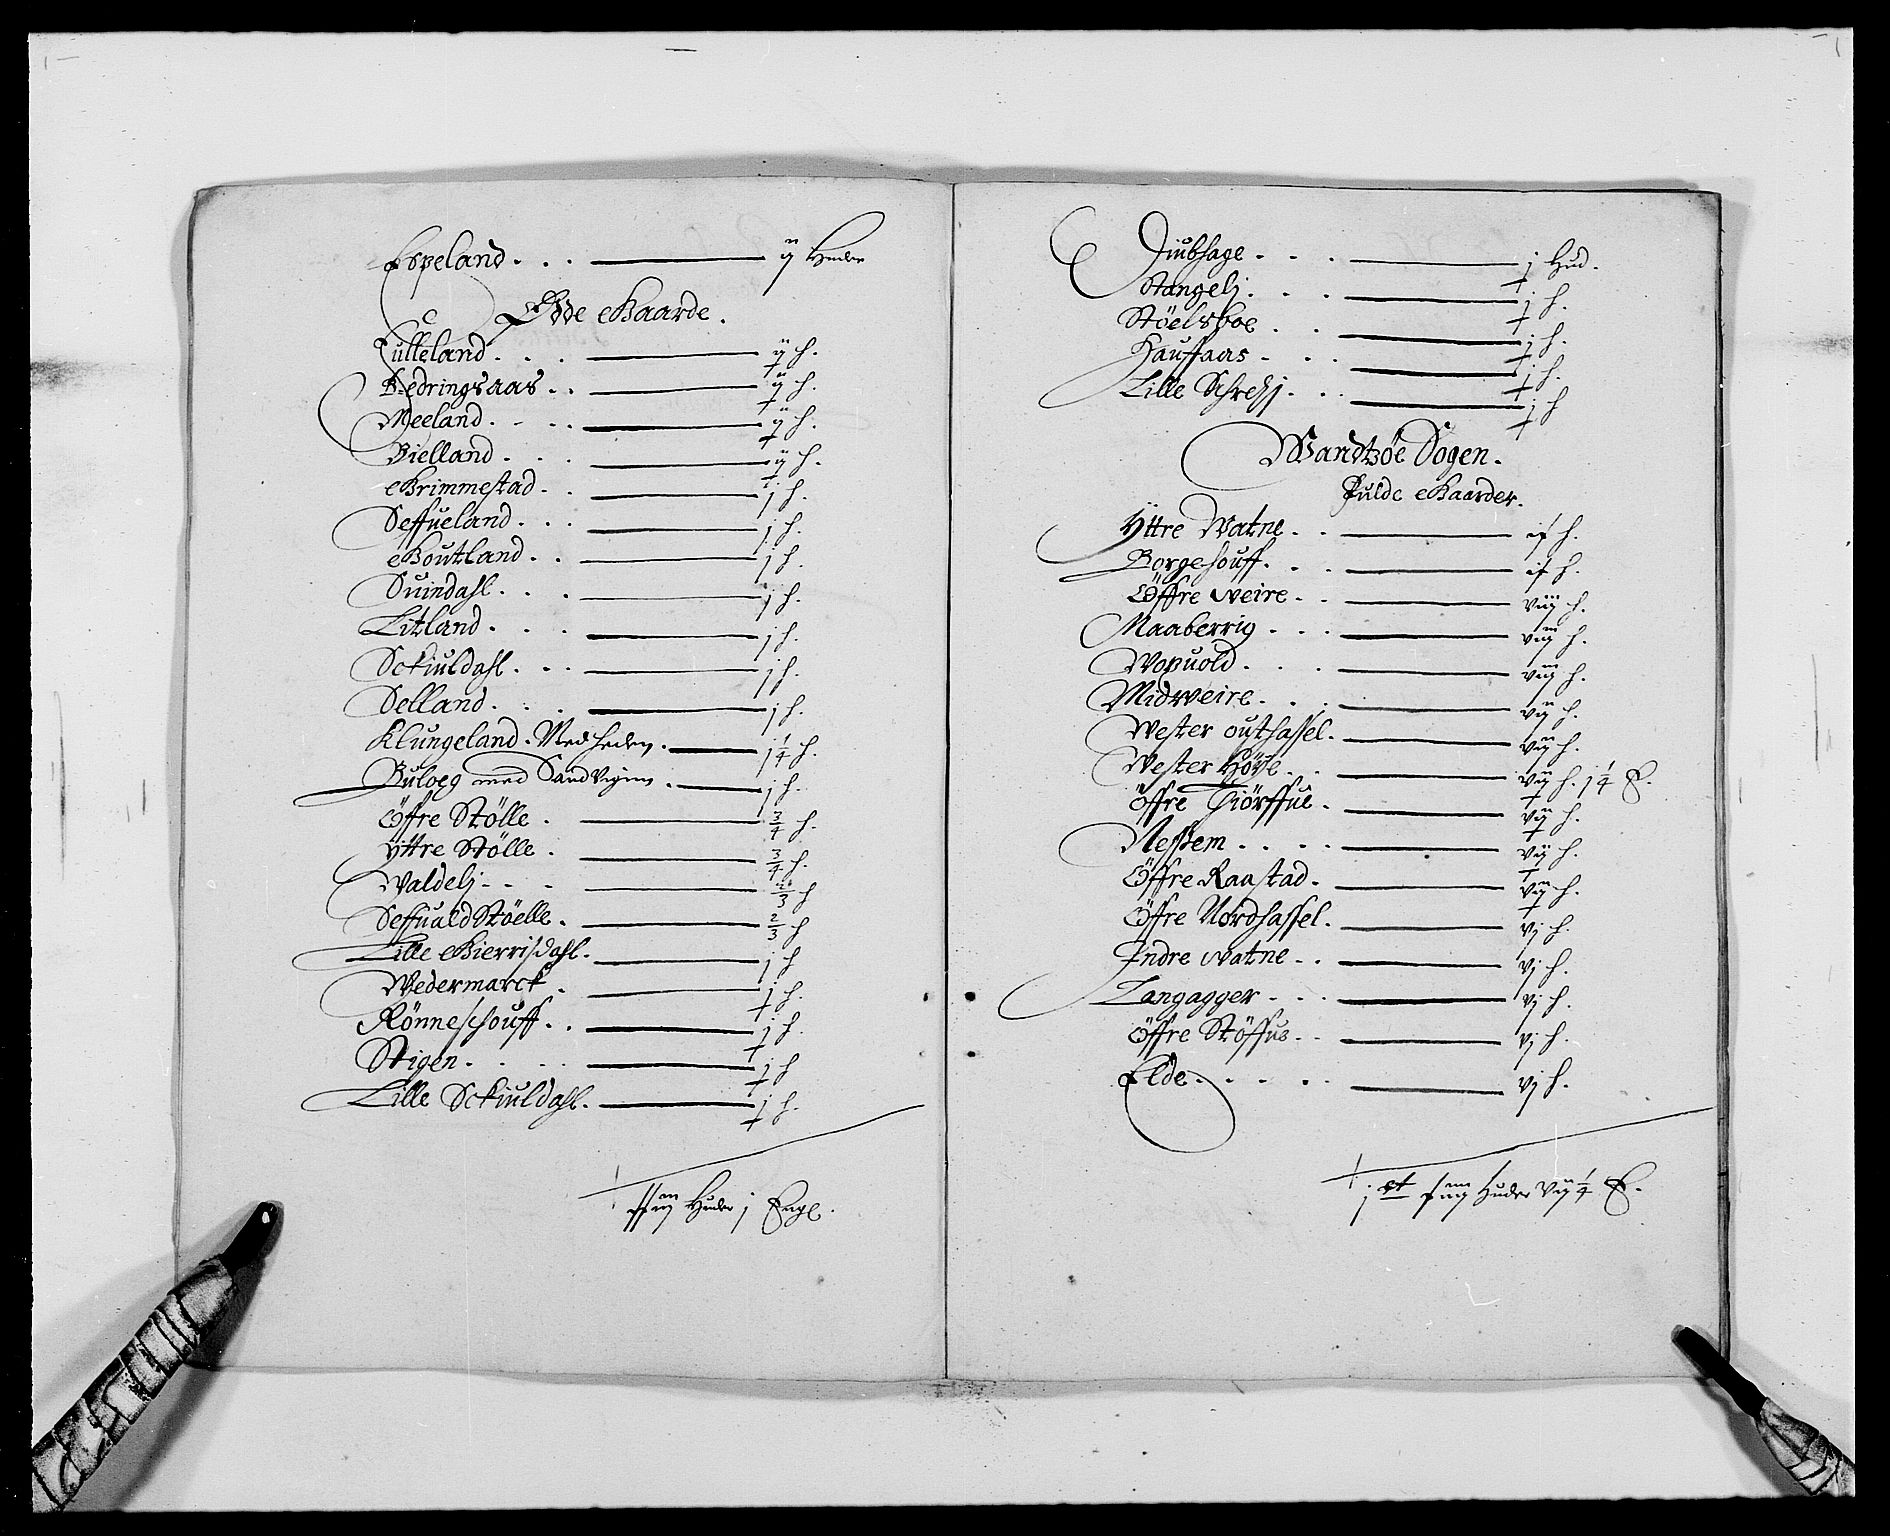 Espeland. . . ij Huder
Øde Gaarde.
Lulleland. . . . ij h.
Bedringsaas . . ij h.
Meeland. . . . ij h.
Bielland . . . ij h.
Grimmestad. . j h.
Seffueland. . . j h.
Goutland . . j h.
Suindahl. . . j h.
Litland. . . . j h.
Sckiuldahl. . . j h.
Selland. . . . j h.
Klungeland. Med heden. j 1/4 h.
Buloeg med Sandvigen. j h.
Öffre Stölle . 3/4 h.
Yttre Stölle . 3/4 h.
Waldelj. . . 2/3 h
Seffuald Stöelle. 2/3 h
Lille Gierrisdahl. j h
Wedermarck . j h.
Rönneshouff. . j h.
Stigen. . . . j h
Lille Sckiuldahl. j h.
Huder j Engl.
Diubhage . . . j Hud.
Stangelj. . . j h.
Stöelsboe . . j h.
Hauffaas . . . j h.
Lille Schreßj. . . j h
Wandtzöe Sogen.
Fulde Gaarder.
Yttre Watne . . ix h.
Borgehouff. . . ix h.
Öffre weire . . viij h.
Maaberrig . . . viij h.
Wopuold. . . . viij h.
Midweire. . . . vij h.
Wester outhassel. vij h.
Wester Höÿe . . vij h. j 1/4 E.
Öffre Tiörffue . vij h.
Nessem . . . . vij h.
Öffre Raastad. vij h.
Öffre Nordhassel. vj h.
Indre watne . . vj h.
Langagger . . . vj h.
Öffre Stöffus . . vj h.
Elde. . . . . vj h.
j ct Huder vij 1/4 E.